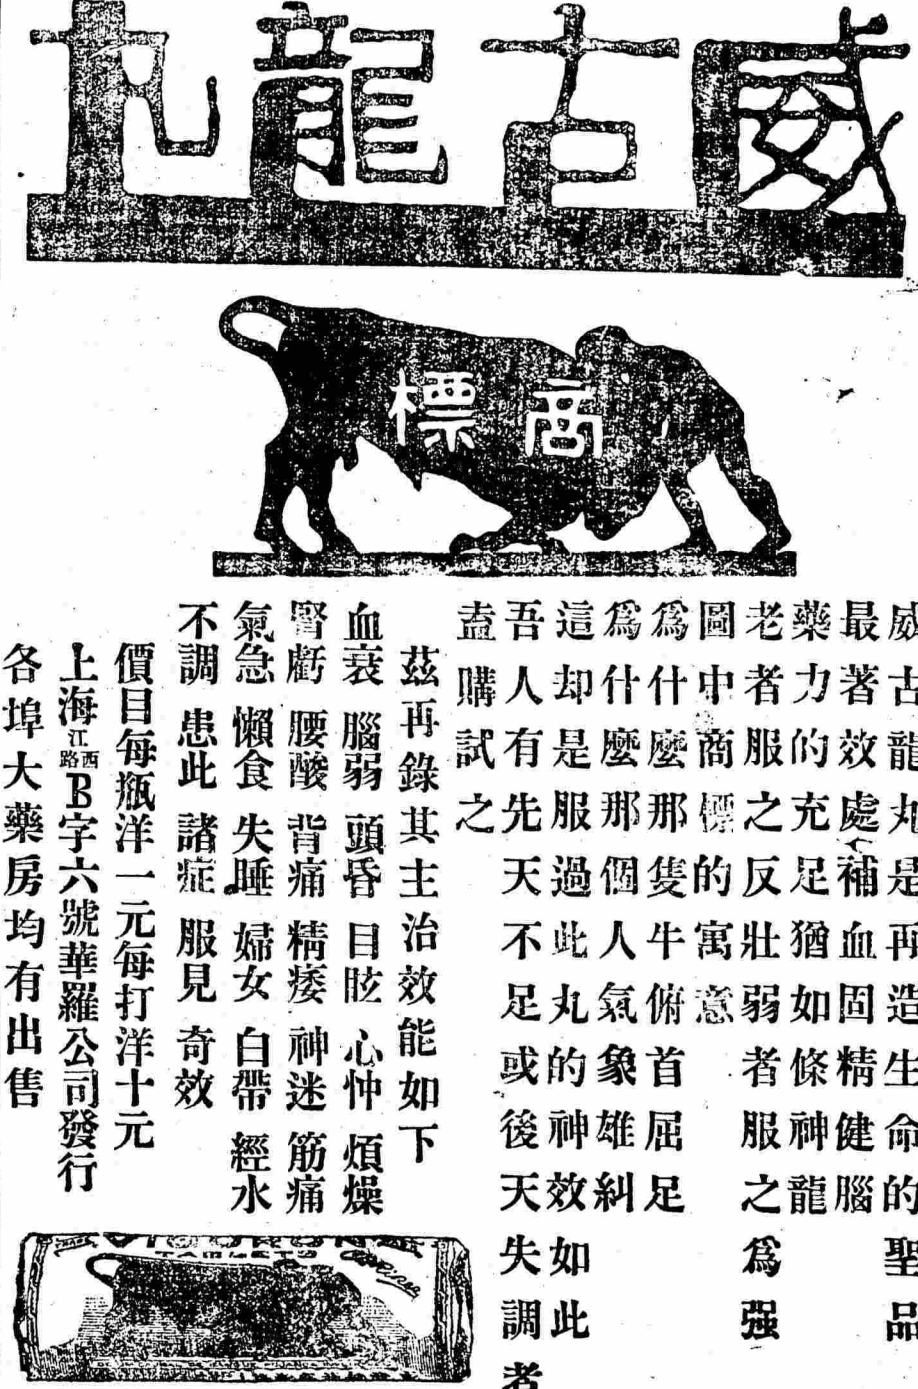 威古龍丸
商標
威古龍丸是再造生命的聖品
最著效處補血固精健腦
藥力的充足猶如條神龍
老者服之反壯弱者服之爲强
圖中商標的寓意
爲什麼那隻牛俯首屈足
爲什麼那個人氣象雄糾
這却是服過此丸的神效如此
吾人有先天不足或後天失調者
盍購試之
茲再錄其主治效能如下
血衰 腦弱 頭昏 目眩 心忡 煩燥
腎虧 腰酸 背痛 精痿 神迷 筋痛
氣急 懶食 失睡 婦女 白帶 經水
不調 患此 諸症 服見 奇效
價目每瓶洋一元每打洋十元
上海江西路B字六號華羅公司發行
各埠大藥房均有出售